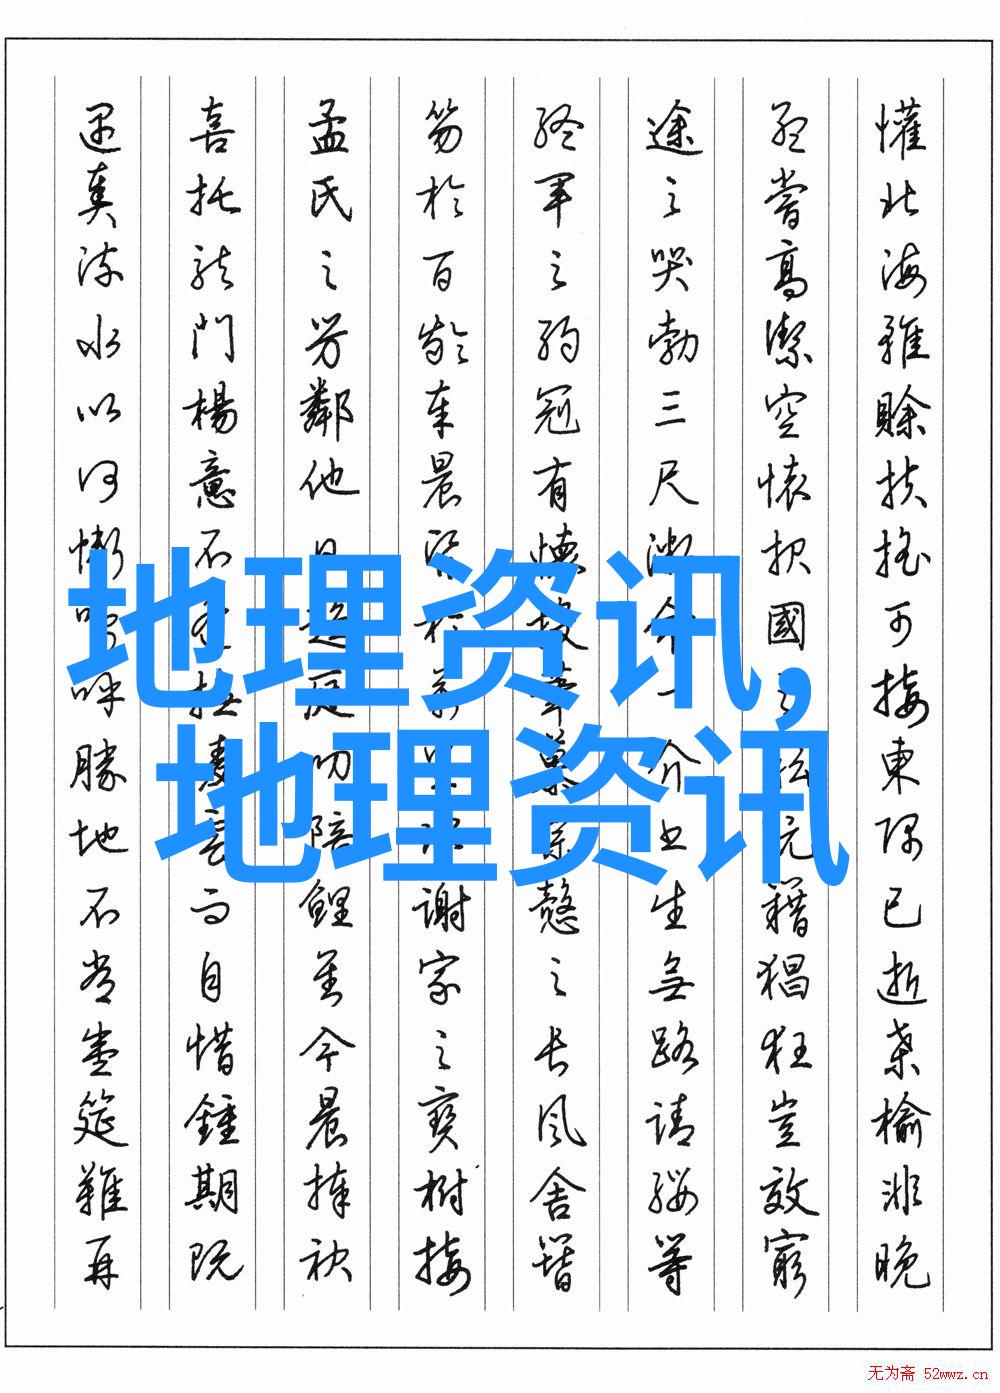 懽北海雖賒扶搖可接東隅已逝桑榆非晚
孟嘗高潔空懷報國之阮籍猖狂豈效窮
途之哭勃三尺微命一介書生無路請纓等
終軍之弱冠有懷投筆慕宗愨之長風舍簪
笏於百齡奉晨昏於萬里非謝家之寶樹接
孟氏之芳鄰他日趨庭叨陪鯉對今晨捧袂
喜托龍門楊意不逢撫凌雲而自惜鍾期既
遇奏流水以何慚嗚呼勝地不常盛筵難再
地理资讯,
地理资讯
无为斋 52wwz.cn